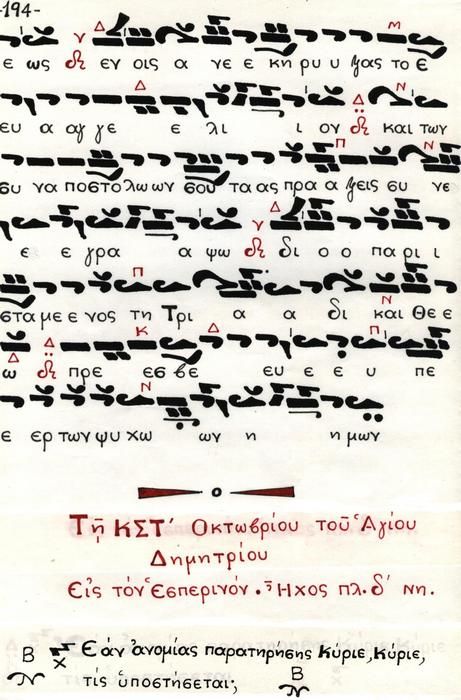 -194-
ε ως εν οις α νε ε κη ρυ υ ξας το ε
ευ α αγ γε ε λι ι ον και των
συ να ποστο λω ων σου τα ας πρα α ξεις συ νε
ε ε γρα α ψω δι ο ο πα ρι ι
στα με ε νος τη Τρι α α δι και Θε ε
ω πρε εσ βε ευ ε ε υ πε
ε ερ των ψυ χω ων η η μων
Τῇ ΚΣΤ΄ Οκτωβρίου τοῦ Ἁγίου
Δημητρίου
Εἰς τόν Ἑσπερινόν. Ἦχος πλ. δ΄ νη.
Εάν ἀνομίας παρατηρησῃς Κύριε, Κύριε,
τίς ὑποστήσεται;